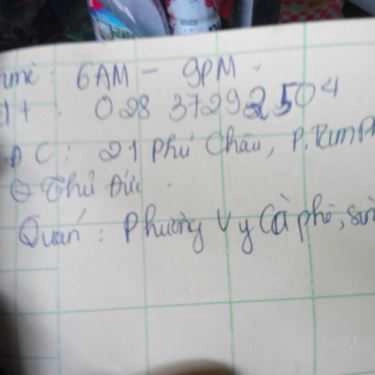 ime : 6AM - 9PM
ĐT : 028 3729 2504
ĐC : 21 Phú Châu, P.
Q Thủ Đức
Quán : Phương Vy Cà phê,